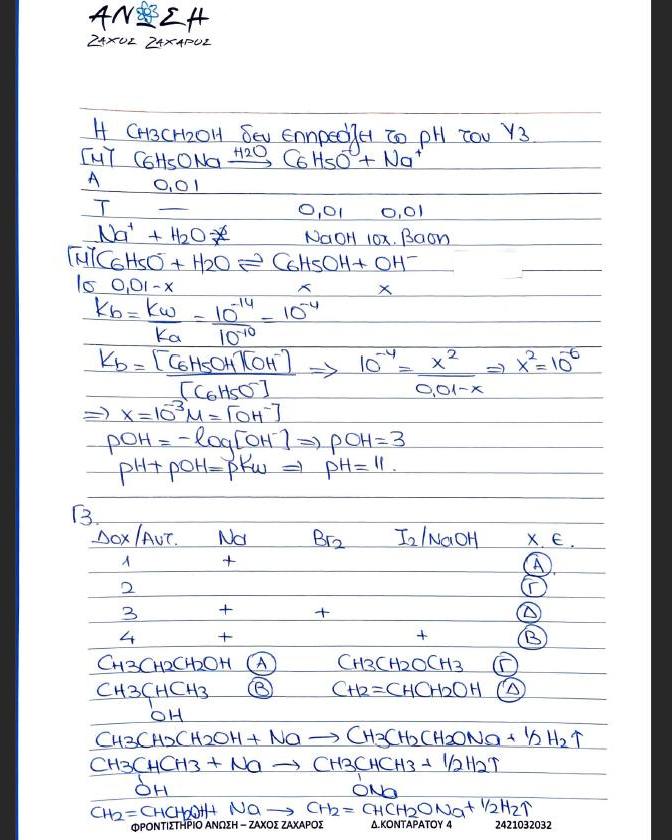 ΑΝΩΣΗ
ΖΑΧΟΣ ΖΑΧΑΡΟΣ
Η CH3CH2OH δεν επηρεάζει το pH του Υ3.
[M] C6H5ONa —H2O→ C6H5O⁻ + Na⁺
Α 0,01
Τ — 0,01 0,01
Na⁺ + H2O ⇸ NaOH ισχ. βαση
[M] C6H5O⁻ + H2O ⇌ C6H5OH + OH⁻
Ισ 0,01-x x x
Kb = Kw/Ka = 10⁻¹⁴/10⁻¹⁰ = 10⁻⁴
Kb = [C6H5OH][OH⁻]/[C6H5O⁻] ⇒ 10⁻⁴ = x²/0,01-x ⇒ x² = 10⁻⁶
⇒ x = 10⁻³ M = [OH⁻]
pOH = -log[OH⁻] ⇒ pOH = 3
pH + pOH = pKw ⇒ pH = 11.
Γ3.
Δοχ/Αντ. Na Br2 I2/NaOH Χ.Ε.
1 + Α
2 Γ
3 + + Δ
4 + + Β
CH3CH2CH2OH Α CH3CH2OCH3 Γ
CH3CHCH3 Β CH2=CHCH2OH Δ
OH
CH3CH2CH2OH + Na → CH3CH2CH2ONa + 1/2 H2↑
CH3CHCH3 + Na → CH3CHCH3 + 1/2 H2↑
OH ONa
CH2=CHCH2OH + Na → CH2=CHCH2ONa + 1/2 H2↑
ΦΡΟΝΤΙΣΤΗΡΙΟ ΑΝΩΣΗ – ΖΑΧΟΣ ΖΑΧΑΡΟΣ Δ.ΚΟΝΤΑΡΑΤΟΥ 4 2421032032